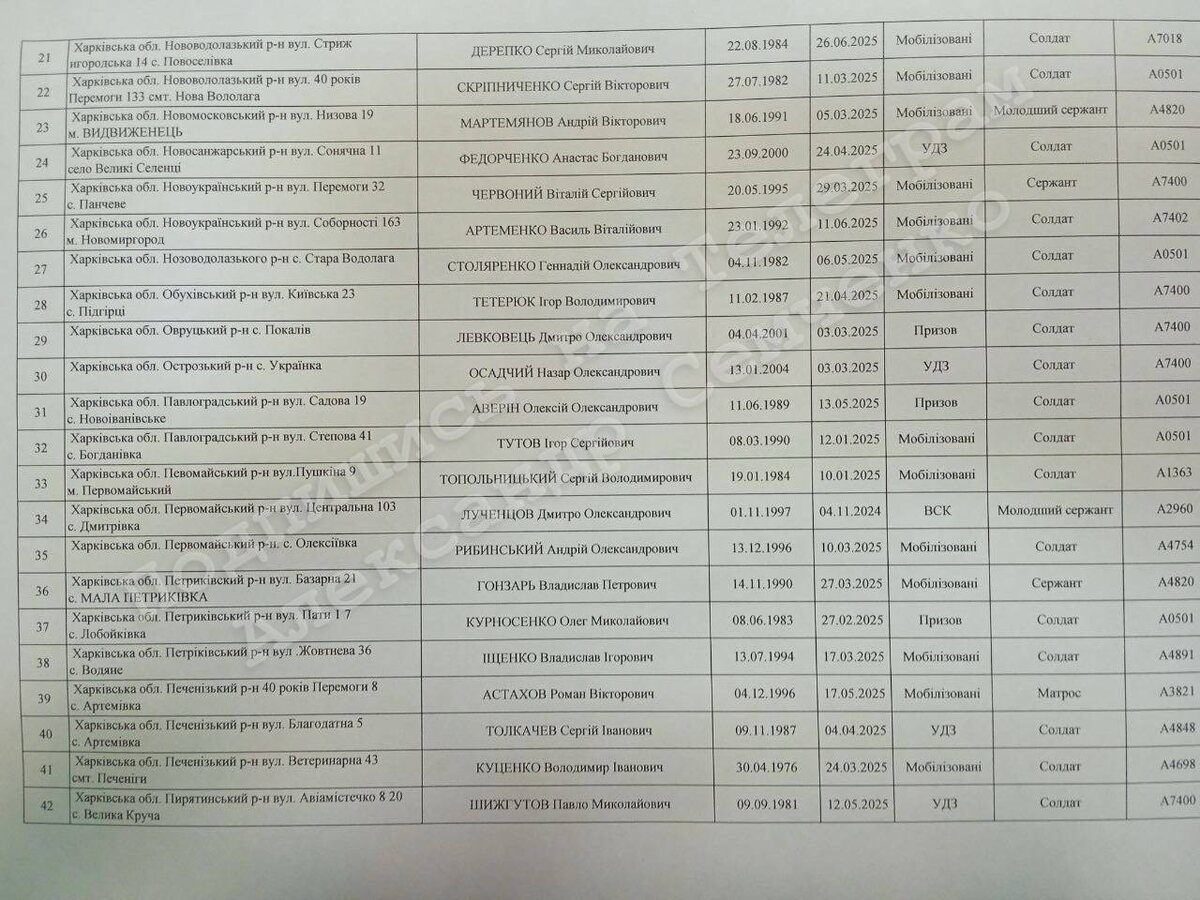 21 Харківська обл. Нововодолазький р-н вул. Стриж ДЕРЕПКО Сергій Миколайович 22.08.1984 26.06.2025 Мобілізовані Солдат А7018
игородська 14 с. Повоселівка
22 Харківська обл. Нововололазький р-н вул. 40 років СКРІПНИЧЕНКО Сергій Вікторович 27.07.1982 11.03.2025 Мобілізовані Солдат А0501
Перемоги 133 смт. Нова Вололага
23 Харківська обл. Новомосковський р-н вул. Низова 19 МАРТЕМЯНОВ Андрій Вікторович 18.06.1991 05.03.2025 Мобілізовані Молодший сержант А4820
м. ВИДВИЖЕНЕЦЬ
24 Харківська обл. Новосанжарський р-н вул. Сонячна 11 ФЕДОРЧЕНКО Анастас Богданович 23.09.2000 24.04.2025 УДЗ Солдат А0501
село Великі Селенці
25 Харківська обл. Новоукраїнський р-н вул. Перемоги 32 ЧЕРВОНИЙ Віталій Сергійович 20.05.1995 29.03.2025 Мобілізовані Сержант А7400
с. Панчеве
26 Харківська обл. Новоукраїнський р-н вул. Соборності 163 АРТЕМЕНКО Василь Віталійович 23.01.1992 11.06.2025 Мобілізовані Солдат А7402
м. Новомиргород
27 Харківська обл. Нозоводолазького р-н с. Стара Водолага СТОЛЯРЕНКО Геннадій Олександрович 04.11.1982 06.05.2025 Мобілізовані Солдат А0501
28 Харківська обл. Обухівський р-н вул. Київська 23 ТЕТЕРЮК Ігор Володимирович 11.02.1987 21.04.2025 Мобілізовані Солдат А7400
с. Підгірці
29 Харківська обл. Овруцький р-н с. Покалів ЛЕВКОВЕЦЬ Дмитро Олександрович 04.04.2001 03.03.2025 Призов Солдат А7400
30 Харківська обл. Острозький р-н с. Українка ОСАДЧИЙ Назар Олександрович 13.01.2004 03.03.2025 УДЗ Солдат А7400
31 Харківська обл. Павлоградський р-н вул. Садова 19 АВЕРІН Олексій Олександрович 11.06.1989 13.05.2025 Призов Солдат А0501
с. Новоіванівське
32 Харківська обл. Павлоградський р-н вул. Степова 41 ТУТОВ Ігор Сергійович 08.03.1990 12.01.2025 Мобілізовані Солдат А0501
с. Богданівка
33 Харківська обл. Певомайський р-н вул.Пушкіна 9 ТОПОЛЬНИЦЬКИЙ Сергій Володимирович 19.01.1984 10.01.2025 Мобілізовані Солдат А1363
м. Первомайський
34 Харківська обл. Первомайський р-н вул. Центральна 103 ЛУЧЕНЦОВ Дмитро Олександрович 01.11.1997 04.11.2024 ВСК Молодший сержант А2960
с. Дмитрівка
35 Харківська обл. Первомайський р-н. с. Олексіївка РИБИНСЬКИЙ Андрій Олександрович 13.12.1996 10.03.2025 Мобілізовані Солдат А4754
36 Харківська обл. Петриківский р-н вул. Базарна 21 ГОНЗАРЬ Владислав Петрович 14.11.1990 27.03.2025 Мобілізовані Сержант А4820
с. МАЛА ПЕТРИКІВКА
37 Харківська обл. Петриківський р-н вул. Пати 1 7 КУРНОСЕНКО Олег Миколайович 08.06.1983 27.02.2025 Призов Солдат А0501
с. Лобойківка
38 Харківська обл. Петріківський р-н вул .Жовтнева 36 ІЩЕНКО Владислав Ігорович 13.07.1994 17.03.2025 Мобілізовані Солдат А4891
с. Водяне
39 Харківська обл. Печенізький р-н 40 років Перемоги 8 АСТАХОВ Роман Вікторович 04.12.1996 17.05.2025 Мобілізовані Матрос А3821
с. Артемівка
40 Харківська обл. Печенізький р-н вул. Благодатна 5 ТОЛКАЧЕВ Сергій Іванович 09.11.1987 04.04.2025 УДЗ Солдат А4848
с. Артемівка
41 Харківська обл. Печенізький р-н вул. Ветеринарна 43 КУЦЕНКО Володимир Іванович 30.04.1976 24.03.2025 Мобілізовані Солдат А4698
смт. Печеніги
42 Харківська обл. Пирятинський р-н вул. Авіамістечко 8 20 ШИЖГУТОВ Павло Миколайович 09.09.1981 12.05.2025 УДЗ Солдат А7400
с. Велика Круча
Подпишись на Телеграм
Александр Семченко